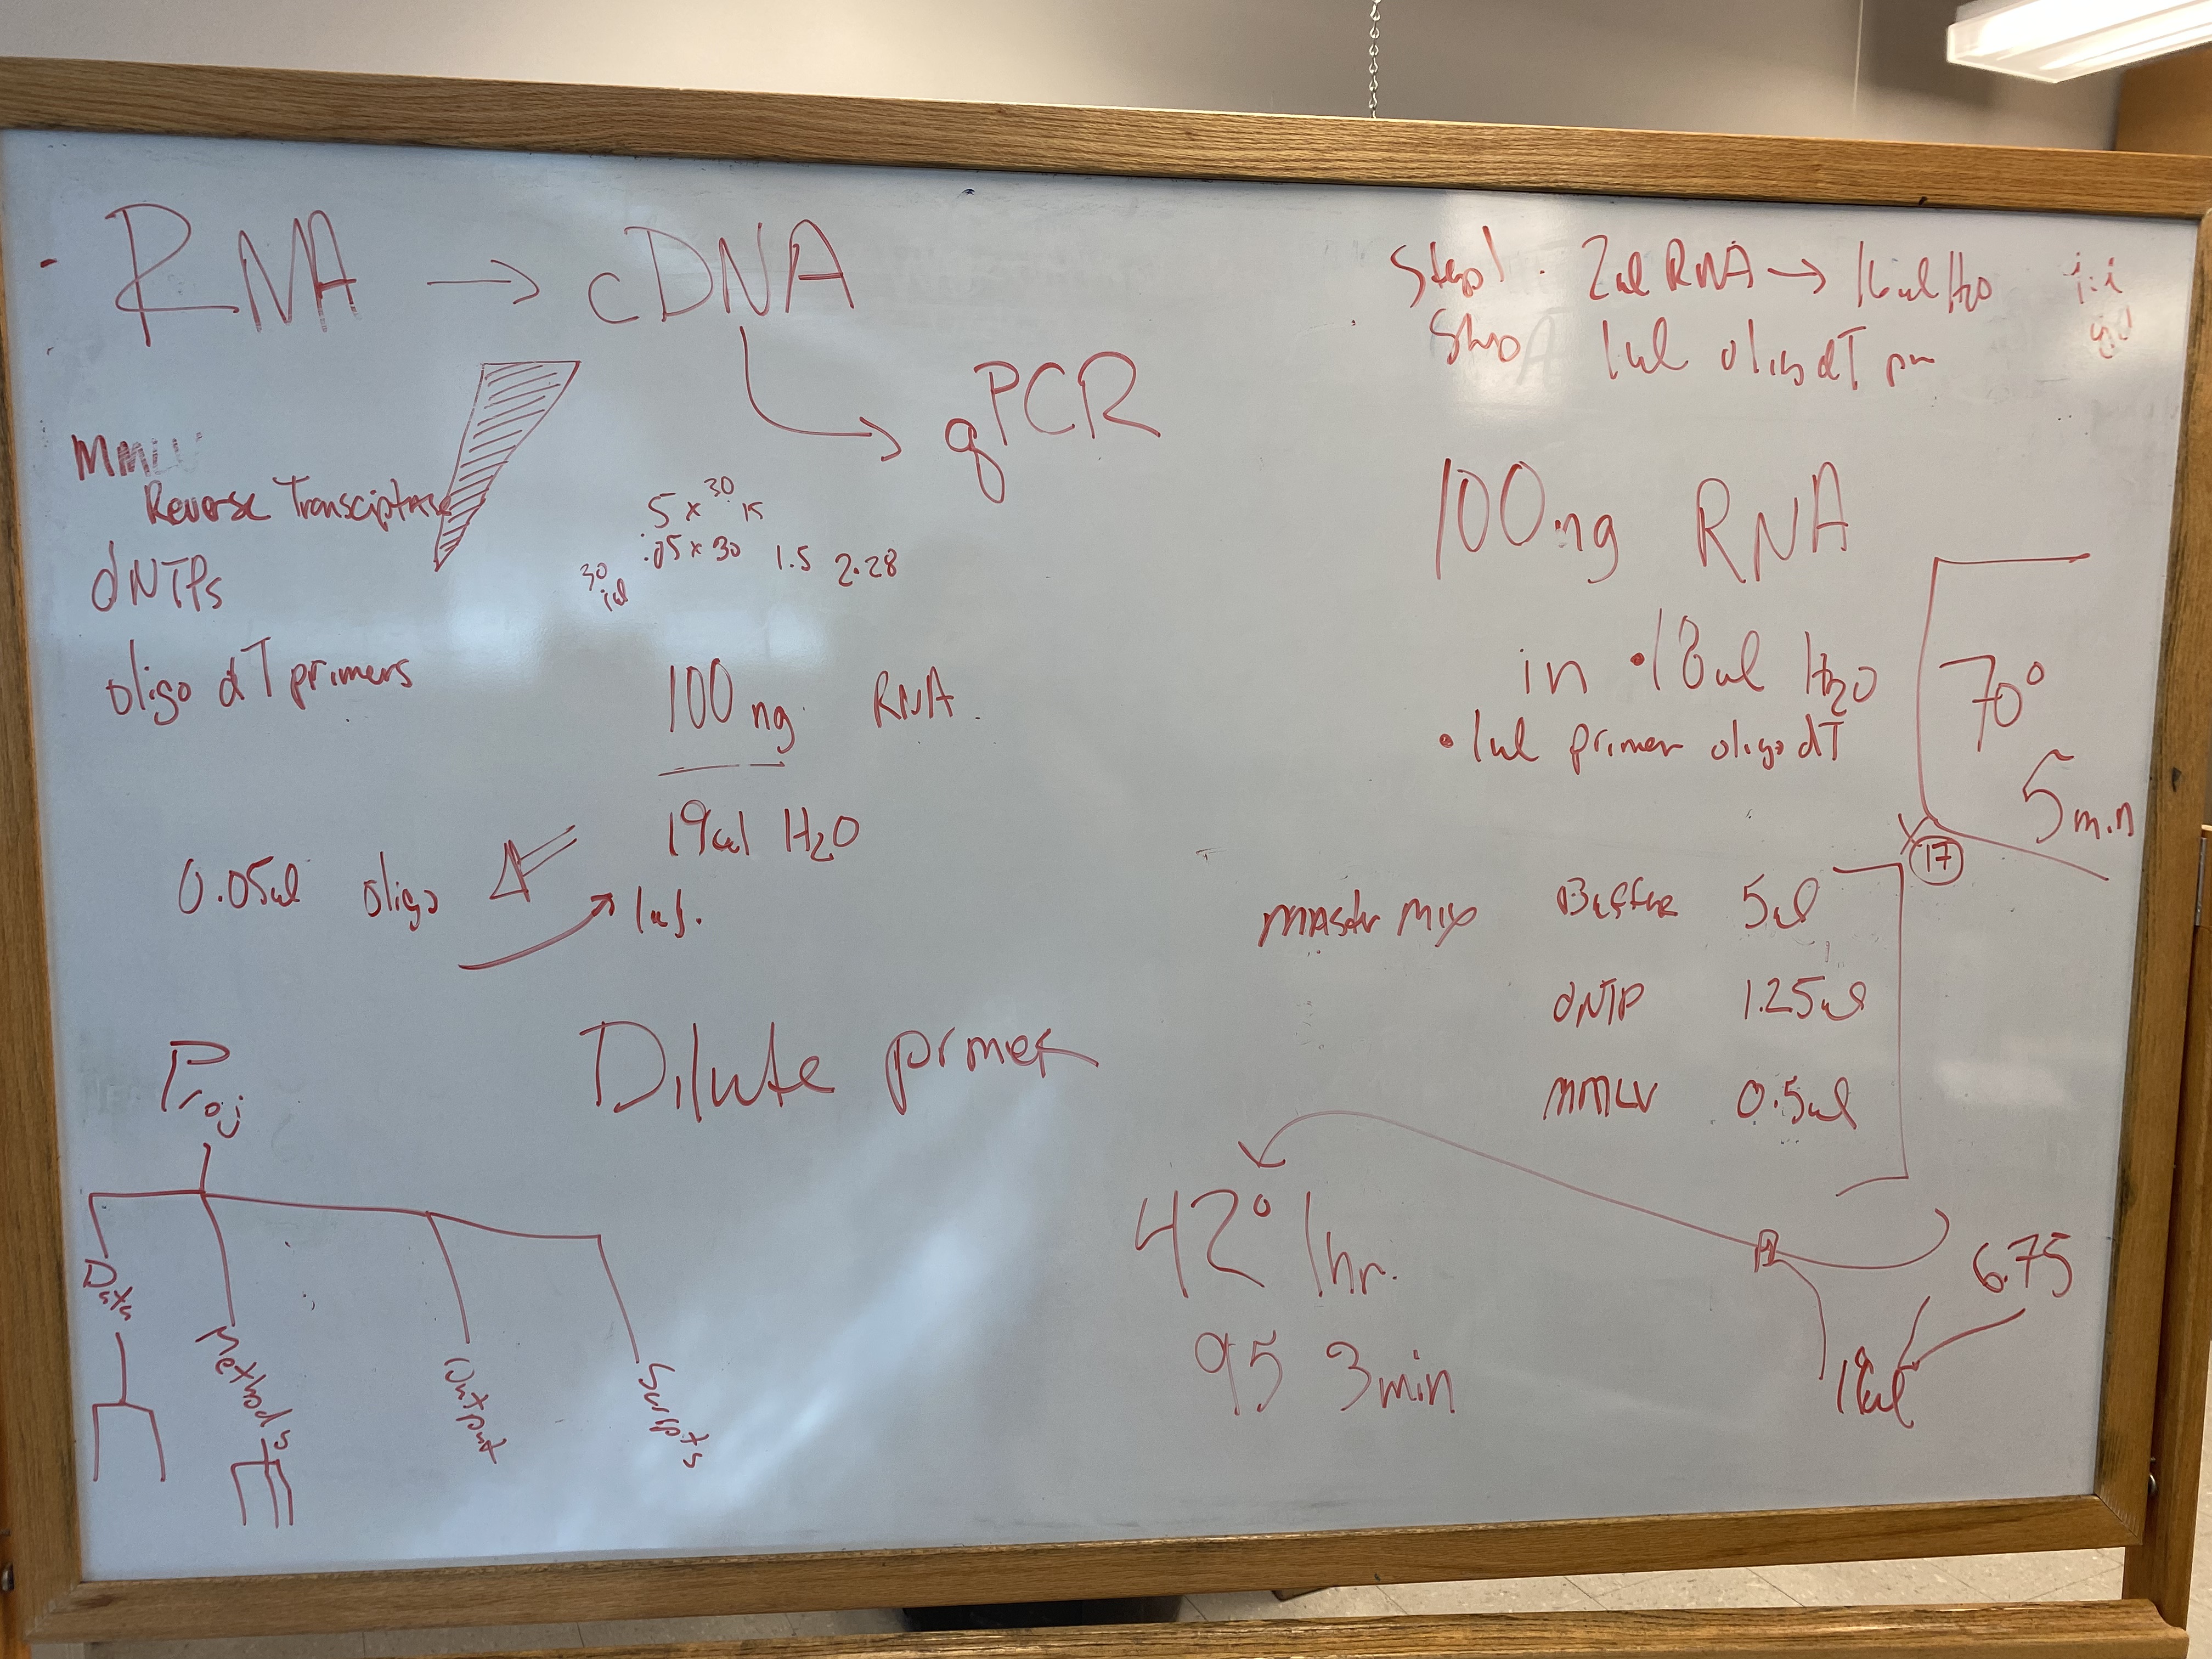 RNA → cDNA
qPCR
MMLV
Reverse Transciptase
dNTPs
oligo dT primers
5 x 30 15
.05 x 30 1.5 2.28
30
100 ng RNA
19ul H2O
0.05ul oligo
Dilute primer
Proj
Data
Methods
Output
Scripts
Step 1. 2ul RNA → 16ul H2O
1ul oligo dT
100ng RNA
in • 18ul H2O
• 1ul primer oligo dT
70°
5 min
17
master mix Buffer 5ul
dNTP 1.25ul
MMLV 0.5ul
6.75
42° 1hr.
95 3min